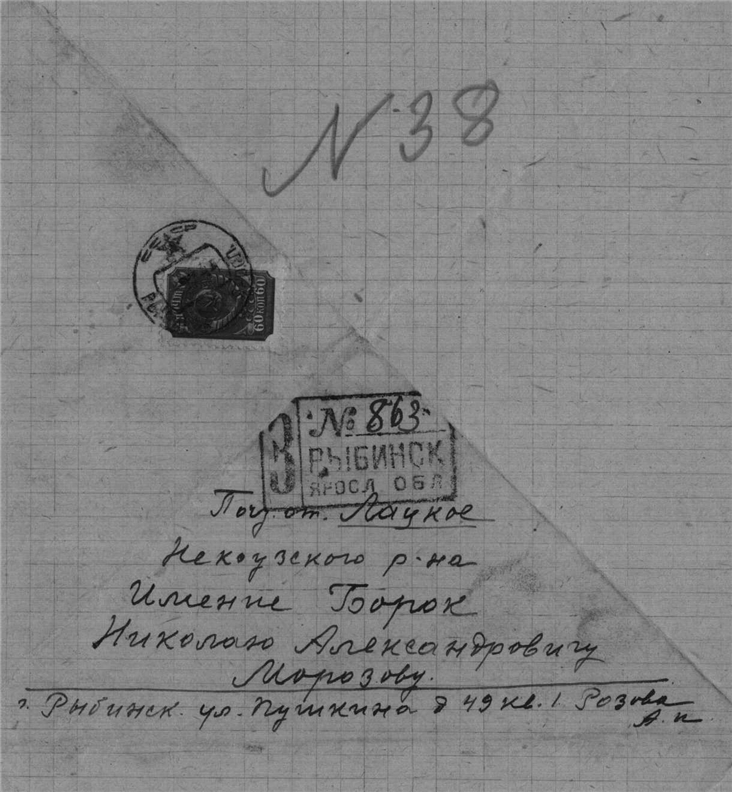 N 38
СССР
60 КОП 60
З
№ 863
РЫБИНСК
ЯРОСЛ ОБЛ
Почт. от. Лацкое
Некоузского р-на
Имение Борок
Николаю Александровичу
Морозову.
г. Рыбинск. ул. Пушкина д 49 кв. 1. Розова
А. П